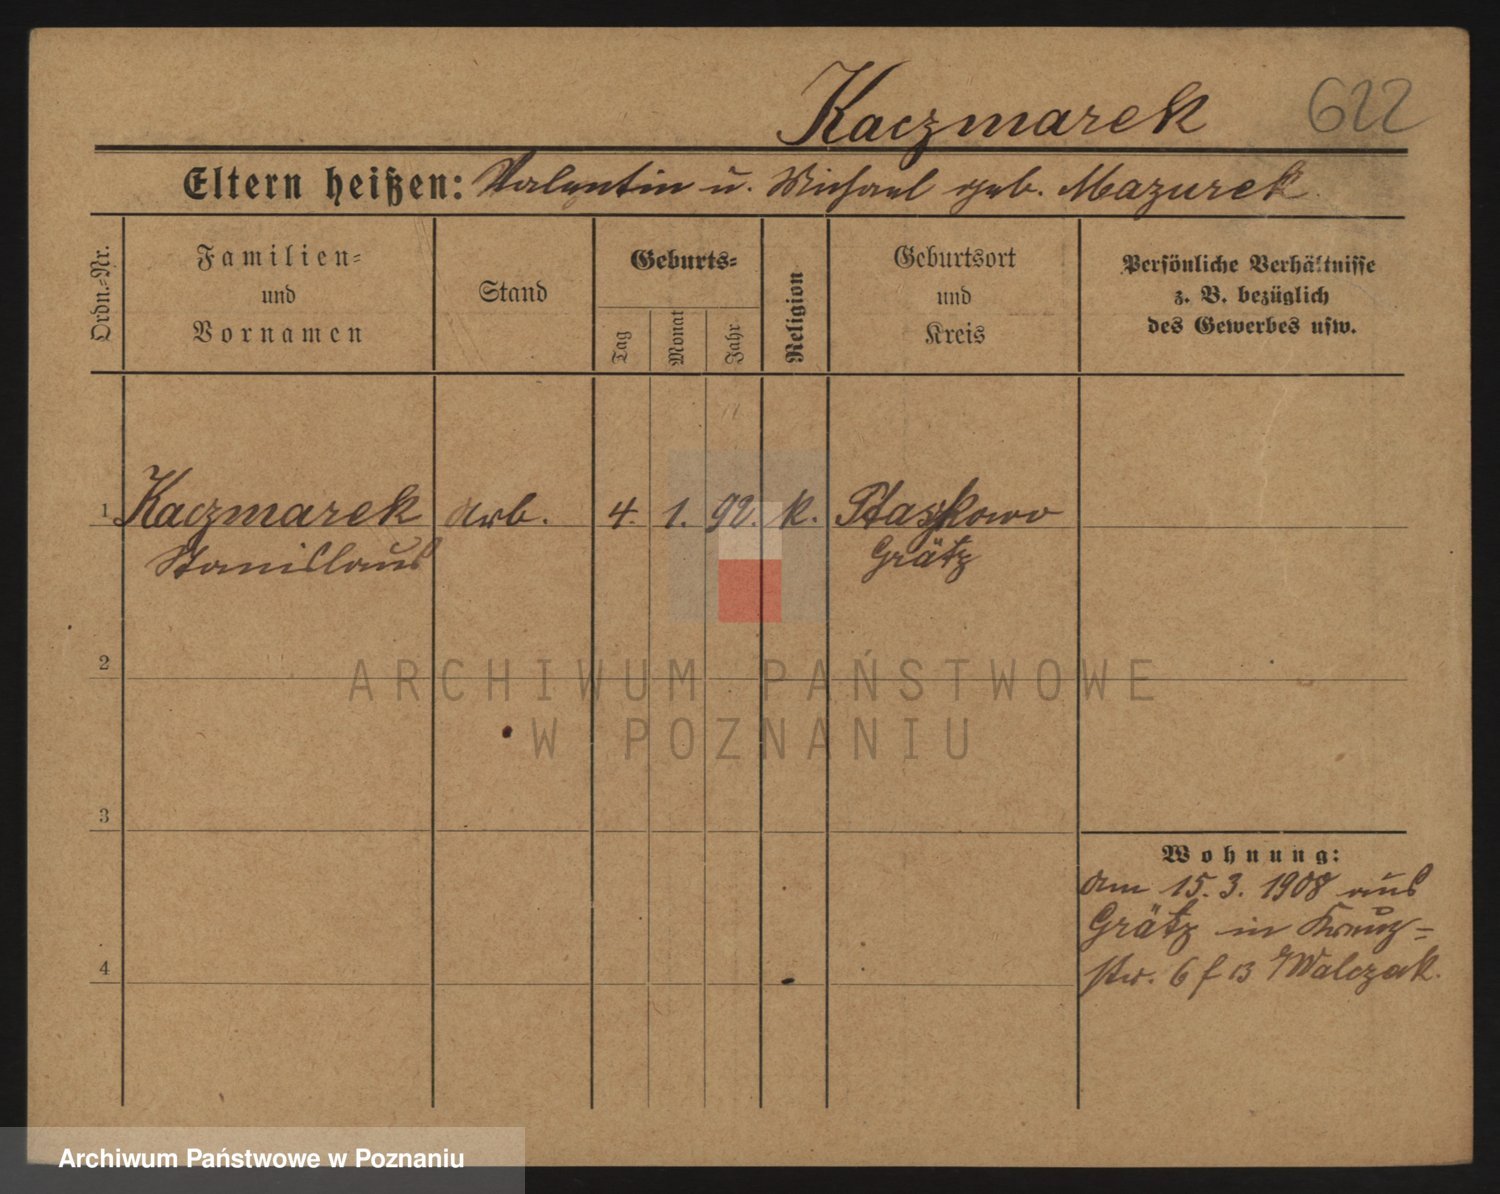 Kaczmarek 622
Eltern heißen: Valentin u. Michael geb. Mazurek
Ordn.-Nr.
Familien-
und
Vornamen
Stand
Geburts-
Tag
Monat
Jahr
Religion
Geburtsort
und
Kreis
Persönliche Verhältnisse
z. B. bezüglich
des Gewerbes usw.
1 Kaczmarek Arb. 4. 1. 92. k. Ptaszkowo
Stanislaus Grätz
2
3
4
Wohnung:
Am 15.3.1908 aus
Grätz in Kreuz-
str. 6 f B Walczak.
ARCHIWUM PAŃSTWOWE
W POZNANIU
Archiwum Państwowe w Poznaniu